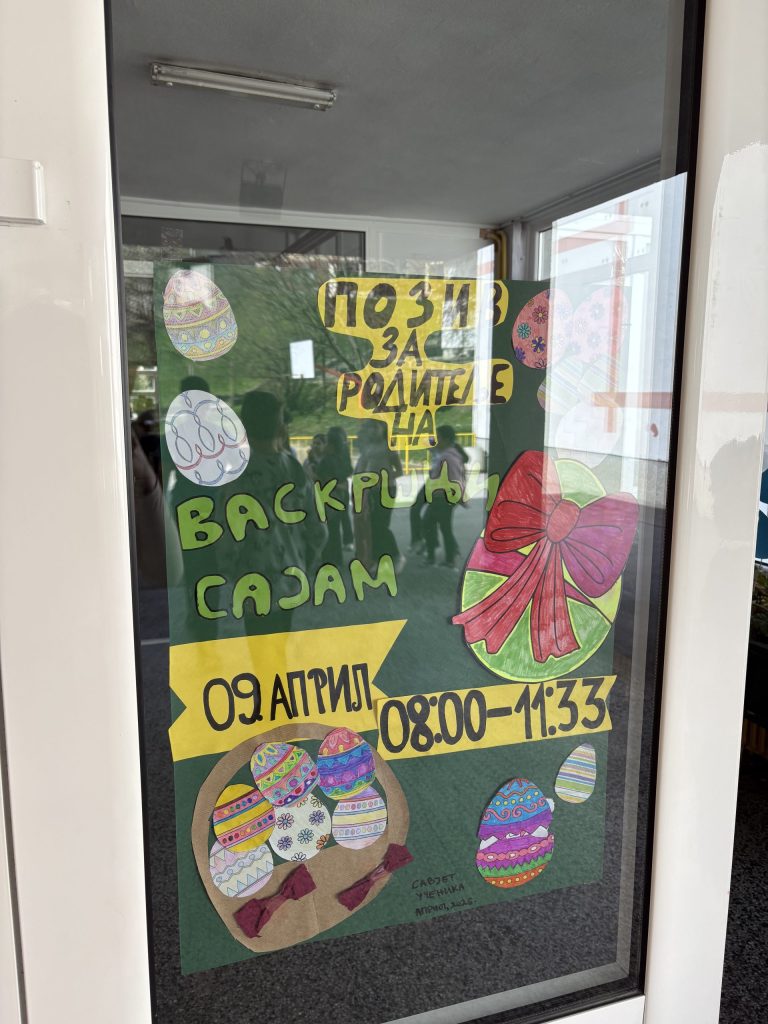 ПОЗИВ
ЗА
РОДИТЕЉЕ
НА
ВАСКРШЊИ
САЈАМ
09. АПРИЛ
08:00-11:33
САВЈЕТ
УЧЕНИКА
АПРИЛ, 2025.